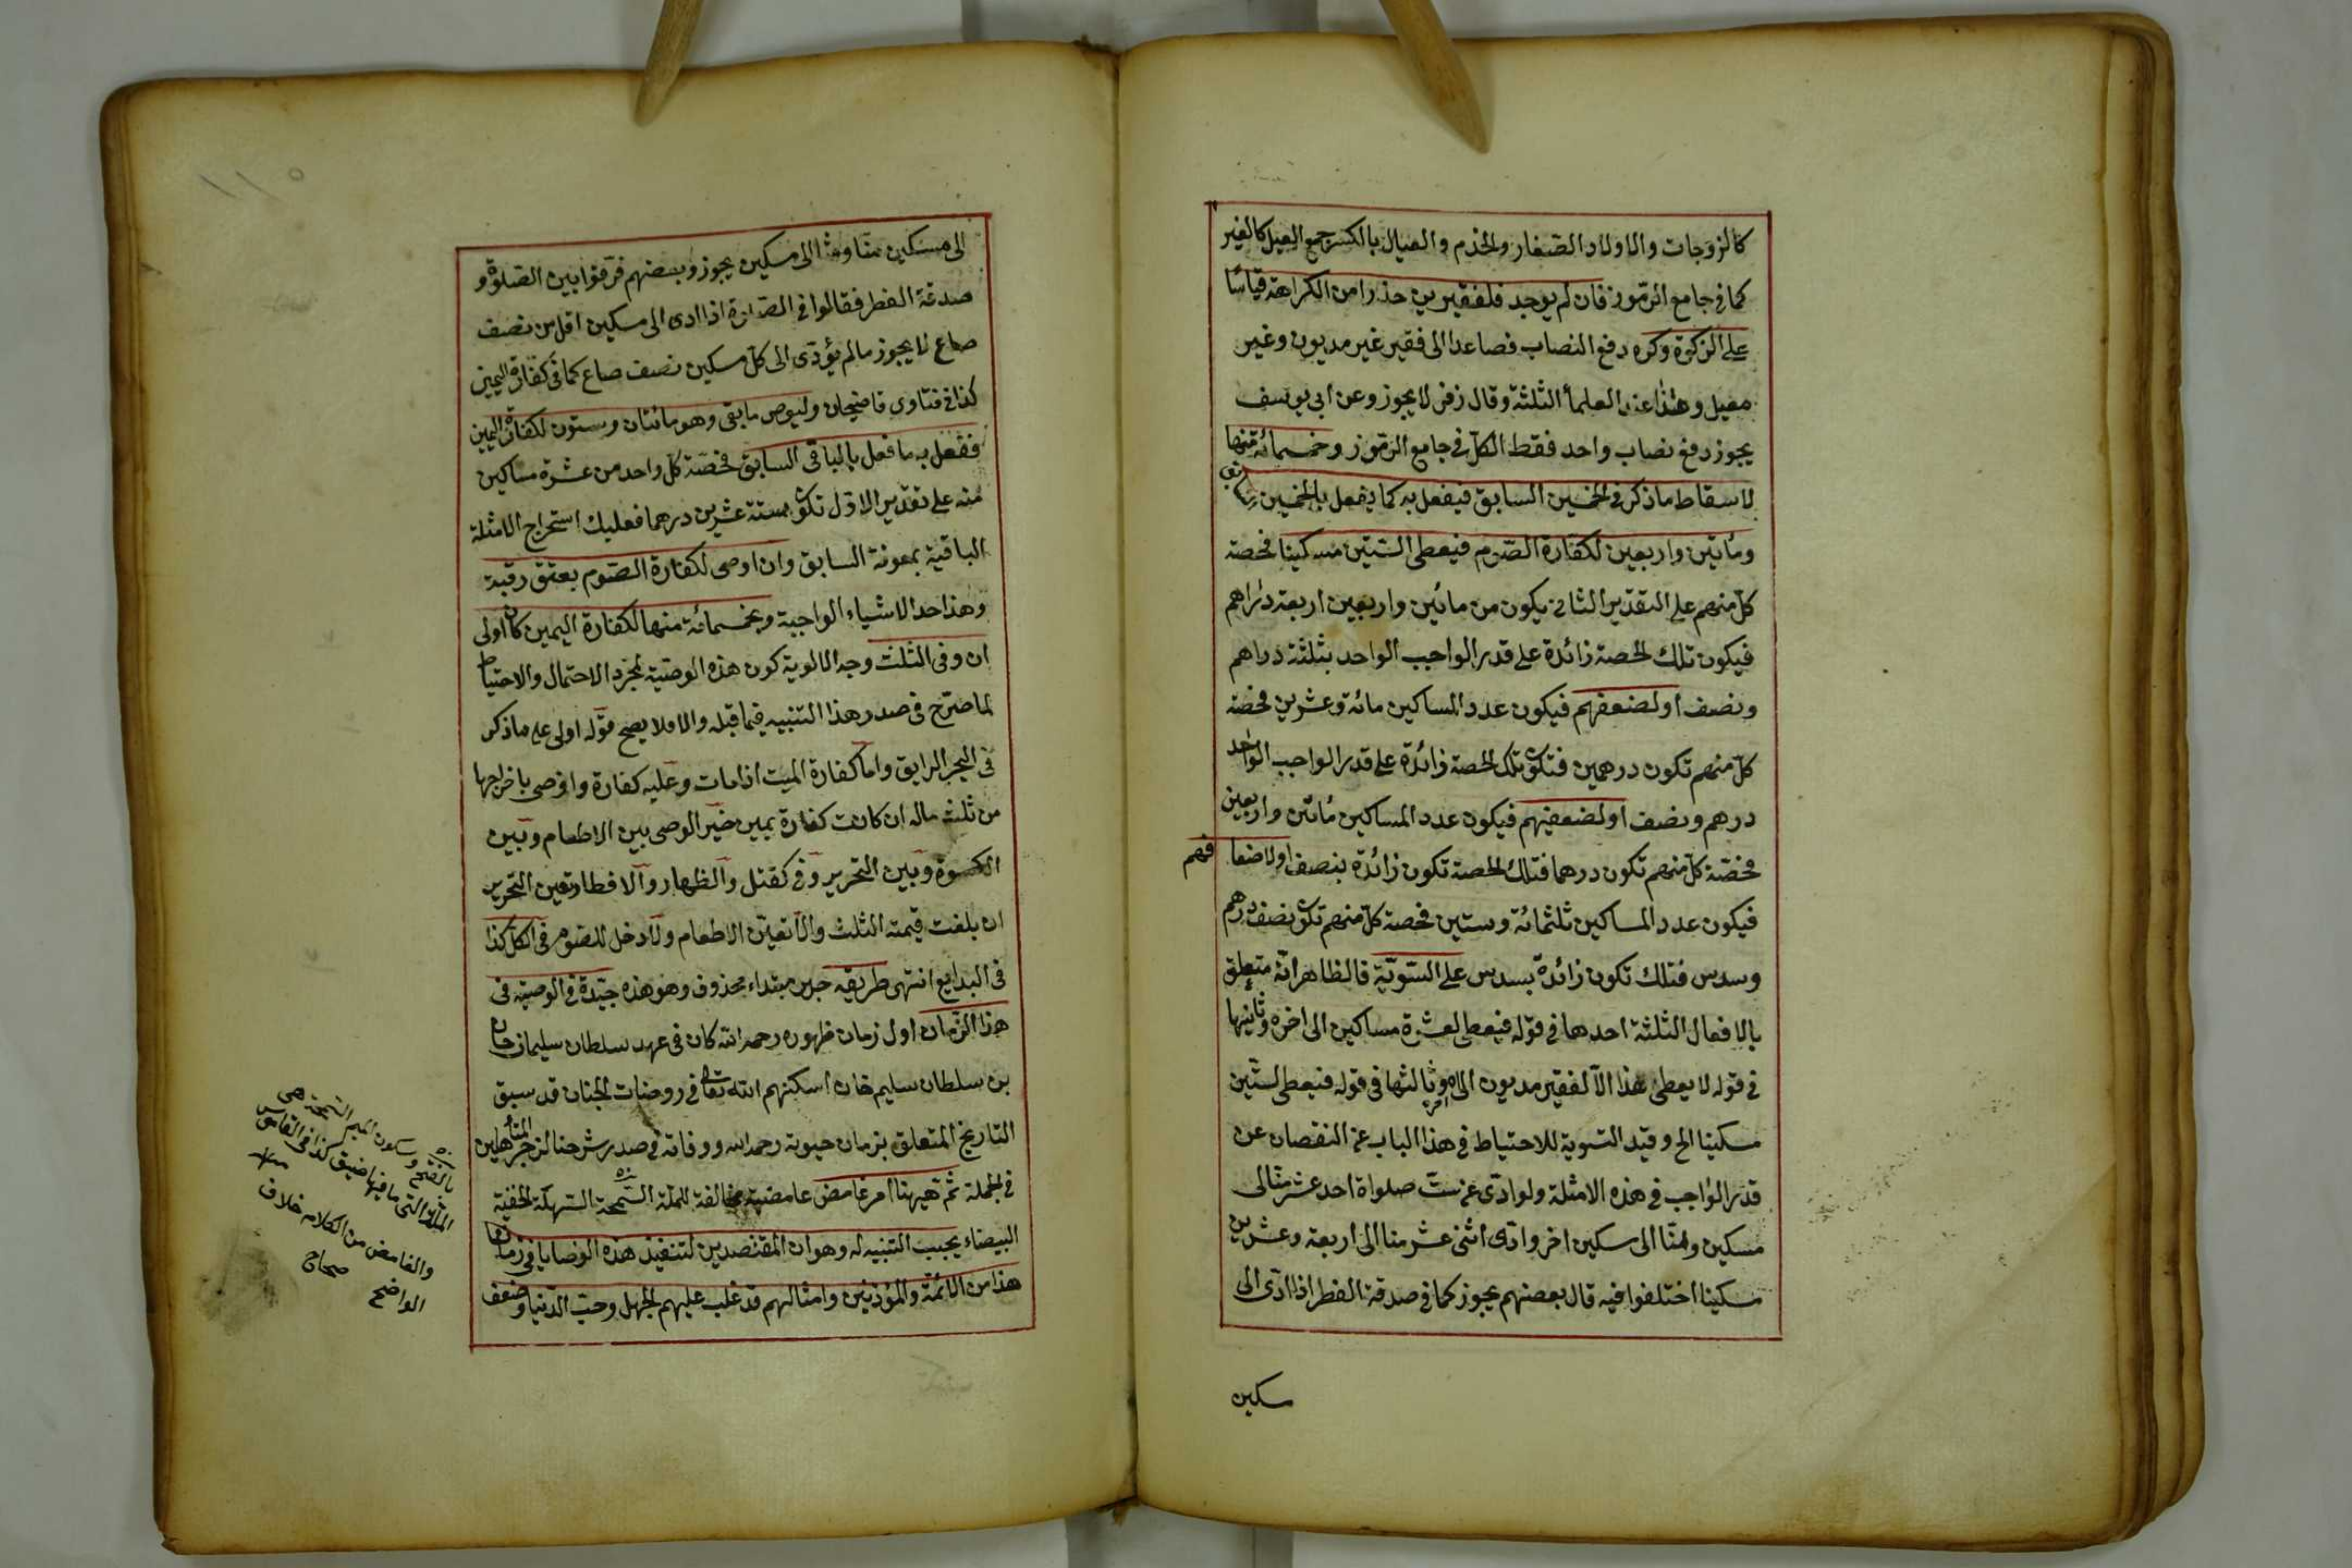 كالزوجات والاولاد الصغار والخدم والعيال بالكسر جمع العيل كالغير
كما في جامع الرموز فان لم يوجد فلفقيرين حذرا من الكراهة قياسا
على الزكوة وكره دفع النصاب فصاعدا الى فقير غير مديون وغير
معيل وهذا عند العلمأ الثلثة وقال زفر لا يجوز وعن ابي يوسف
يجوز دفع نصاب واحد فقط الكل في جامع الرموز وخمسمائة منها
لاسقاط ما ذكر في الخمسين السابق فيفعل به كما يفعل بالخمسين
ومأتين واربعين لكفارة الصوم فيعطى الستين مسكينا فحصة
كل منهم على التقدير الثاني يكون من مائين واربعين اربعة دراهم
فيكون تلك الحصة زائدة على قدر الواجب الواحد بثلثة دراهم
ونصف او لضعفهم فيكون عدد المساكين مائة وعشرين فحصة
كل منهم تكون درهمين فتكون تلك الحصة زائدة على قدر الواجب الواحد
درهم ونصف او لضعفيهم فيكون عدد المساكين مأتين واربعين
فحصة كل منهم تكون درهما فتلك الحصة تكون زائدة بنصف اولاضعا فهم
فيكون عدد المساكين ثلثمائة وستين فحصة كل منهم تكون نصف درهم
وسدس فتلك تكون زائدة بسدس على السوية فالظاهر انه متعلق
بالافعال الثلثة احدها في قوله فيعطى لعشرة مساكين الى اخره وثانيها
في قوله لا يعطى هذا الا لفقير مديون الى اخره وثالثها في قوله فيعطى لستين
مسكينا الخ وقيد التسوية للاحتياط في هذا الباب عن النقصان عن
قدر الواجب في هذه الامثلة ولو ادى عن ست صلواة احد عشر منا الى
مسكين ومنا الى مسكين اخر وادى اثنى عشر منا الى اربعة وعشرين
مسكينا اختلفوا فيه قال بعضهم يجوز كما في صدقة الفطر اذا ادى الى
مسكين
الى مسكين منا ومنا الى مسكين يجوز وبعضهم فرقوا بين الصلوة و
صدقة الفطر فقالوا في الصلوة اذا ادى الى مسكين اقل من نصف
صاع لا يجوز ما لم يؤدى الى كل مسكين نصف صاع كما في كفارة اليمين
كذا في فتاوى قاضيخان وليوص ما بقى وهو مائتان وستون لكفارة اليمين
ففعل به ما فعل بالباقى السابق فحصة كل واحد من عشرة مساكين
منه على تقدير الاول تكون ستة عشرين درهما فعليك استخراج الامثلة
الباقية بمعونة السابق وان اوصى لكفارة الصوم بعتق رقبة
وهذا احد الاشياء الواجبة وبخمسمائة منها لكفارة اليمين كان اولى
ان وفى الثلث وجه الالوية كون هذه الوصية لمجرد الاحتمال والاحتياط
لما صرح في صدر هذا التنبيه فيما قبله والا فلا يصح قوله اولى على ما ذكر
في البحر الرايق واما كفارة الميت اذا مات وعليه كفارة واوصى باخراجها
من ثلث ماله ان كانت كفارة يمين خير الوصى بين الاطعام وبين
الكسوة وبين التحرير وفي كقتل والظهار والافطار تعين التحرير
ان بلغت قيمته الثلث والا تعين الاطعام ولا دخل للصوم في الكل كذا
في البدايع انتهى طريقه خبر مبتداء محذوف وهو هذه جيدة في الوصية في
هذا الزمان اول زمان ظهوره رحمه الله كان في عهد سلطان سليمان خان
بن سلطان سليم خان اسكنهم الله تعالى في روضات الجنان قد سبق
التاريخ المتعلق بزمان حيوته رحمه الله ووفاته في صدر شرحنا لزجر المتأهلين
في الجملة ثم هيهنا امر غامض عامضية مخالفة للملة السمحة السهلة الحنفية
البيضاء يجب التنبيه له وهو ان المقتصدين لتنفيذ هذه الوصايا في زماننا
هذا من الائمة والمؤذنين وامثالهم قد غلب عليهم الجهل وحب الدنيا وضعف
بالفتح وسكون الميم السمحة هى
الملة التى ما فيها ضيق كذا في القاموس
والغامض من الكلام خلاف
الواضح صحاح